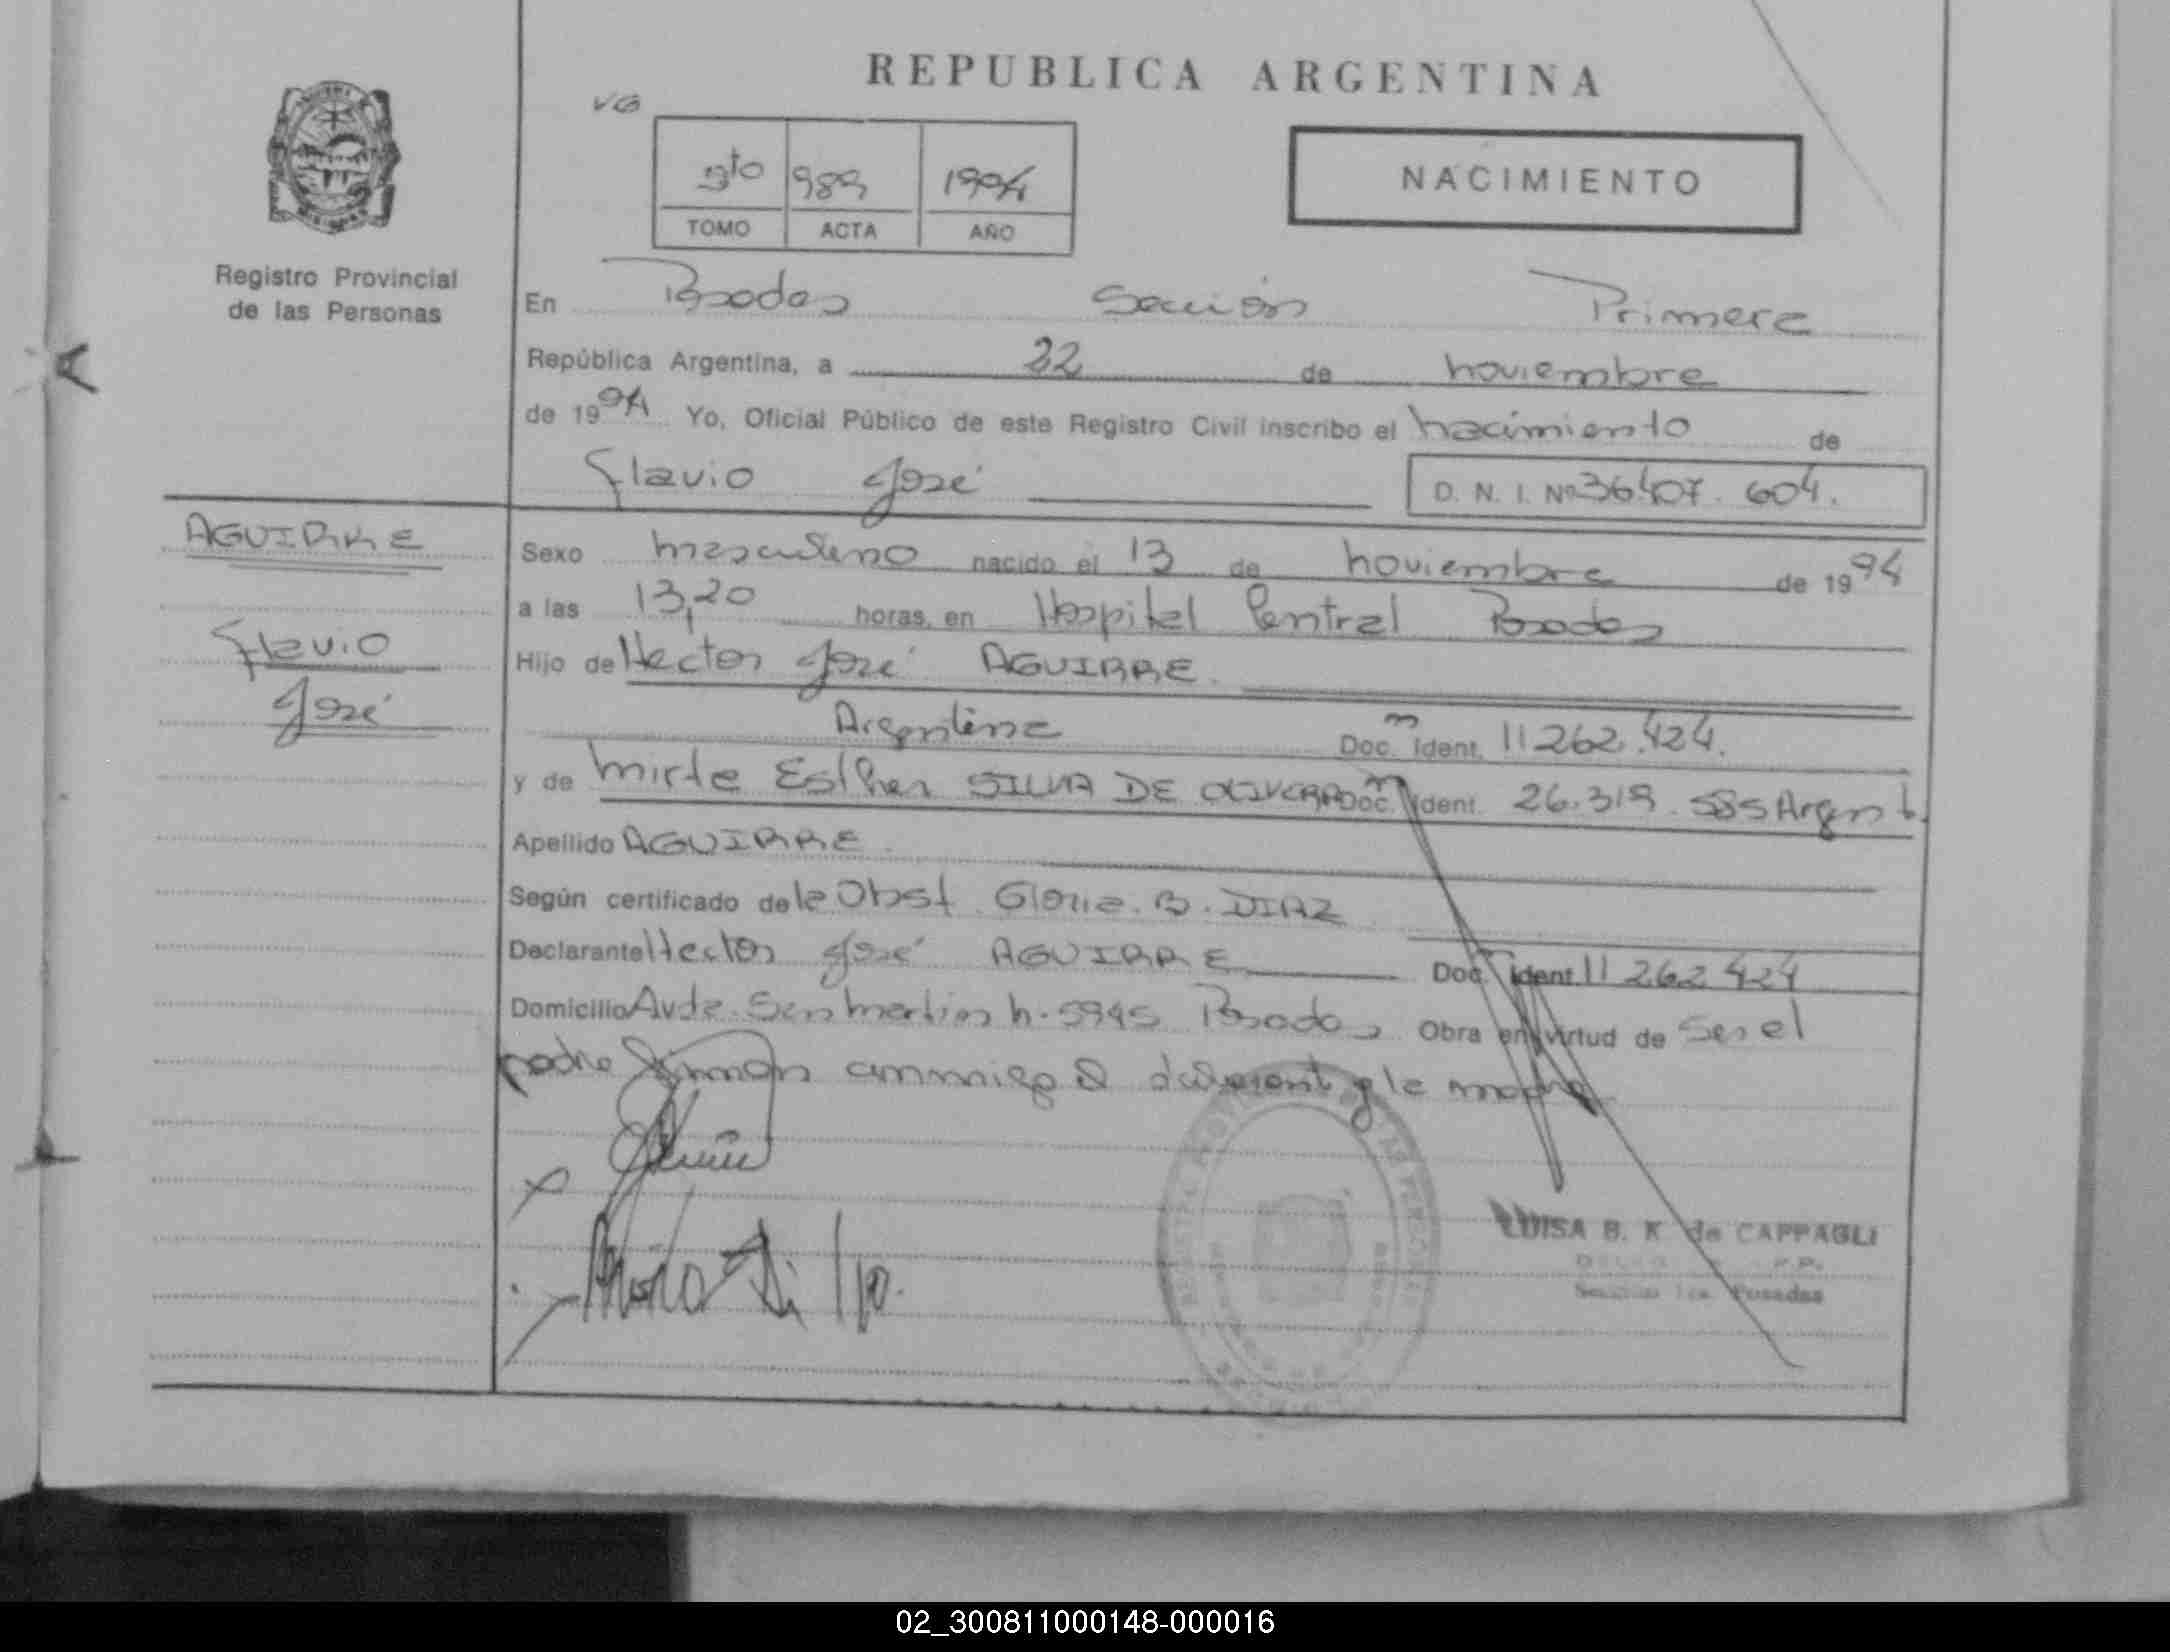 REPUBLICA ARGENTINA
VG
9to 989 1994
TOMO ACTA AÑO
NACIMIENTO
Registro Provincial
de las Personas
En Posadas Sección Primera
República Argentina, a 22 de noviembre
de 1994 Yo, Oficial Público de este Registro Civil inscribo el nacimiento de
Flavio José D. N. I. Nº 36407.604.
AGUIRRE
Flavio
José
Sexo masculino nacido el 13 de noviembre de 1994
a las 13,20 horas, en Hospital Central Posadas
Hijo de Hector José AGUIRRE.
Argentina Doc. m Ident. 11262.424.
y de Mirta Esther SILVA DE OLIVERA Doc. m Ident. 26.319.585 Argent
Apellido AGUIRRE
Según certificado de la Obst. Gloria. B. DIAZ
Declarante Hector José AGUIRRE Doc. Ident. 11262424
Domicilio Avda. San Martin n. 5945 Posadas Obra en virtud de ser el
padre Firman conmigo el y la madre
LUISA B. K de CAPPAGLI
Sección 1ra. Posadas
02_300811000148-000016